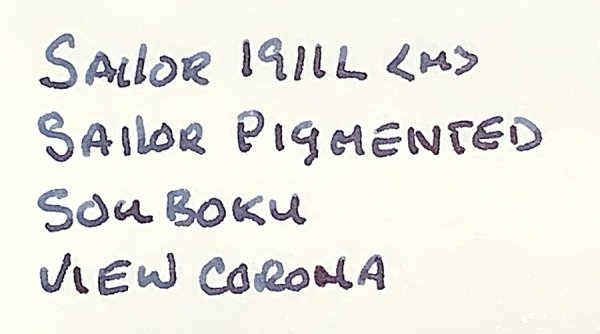 SAILOR 1911L <M>
SAILOR PIGMENTED
SOU BOKU
VIEW CORONA